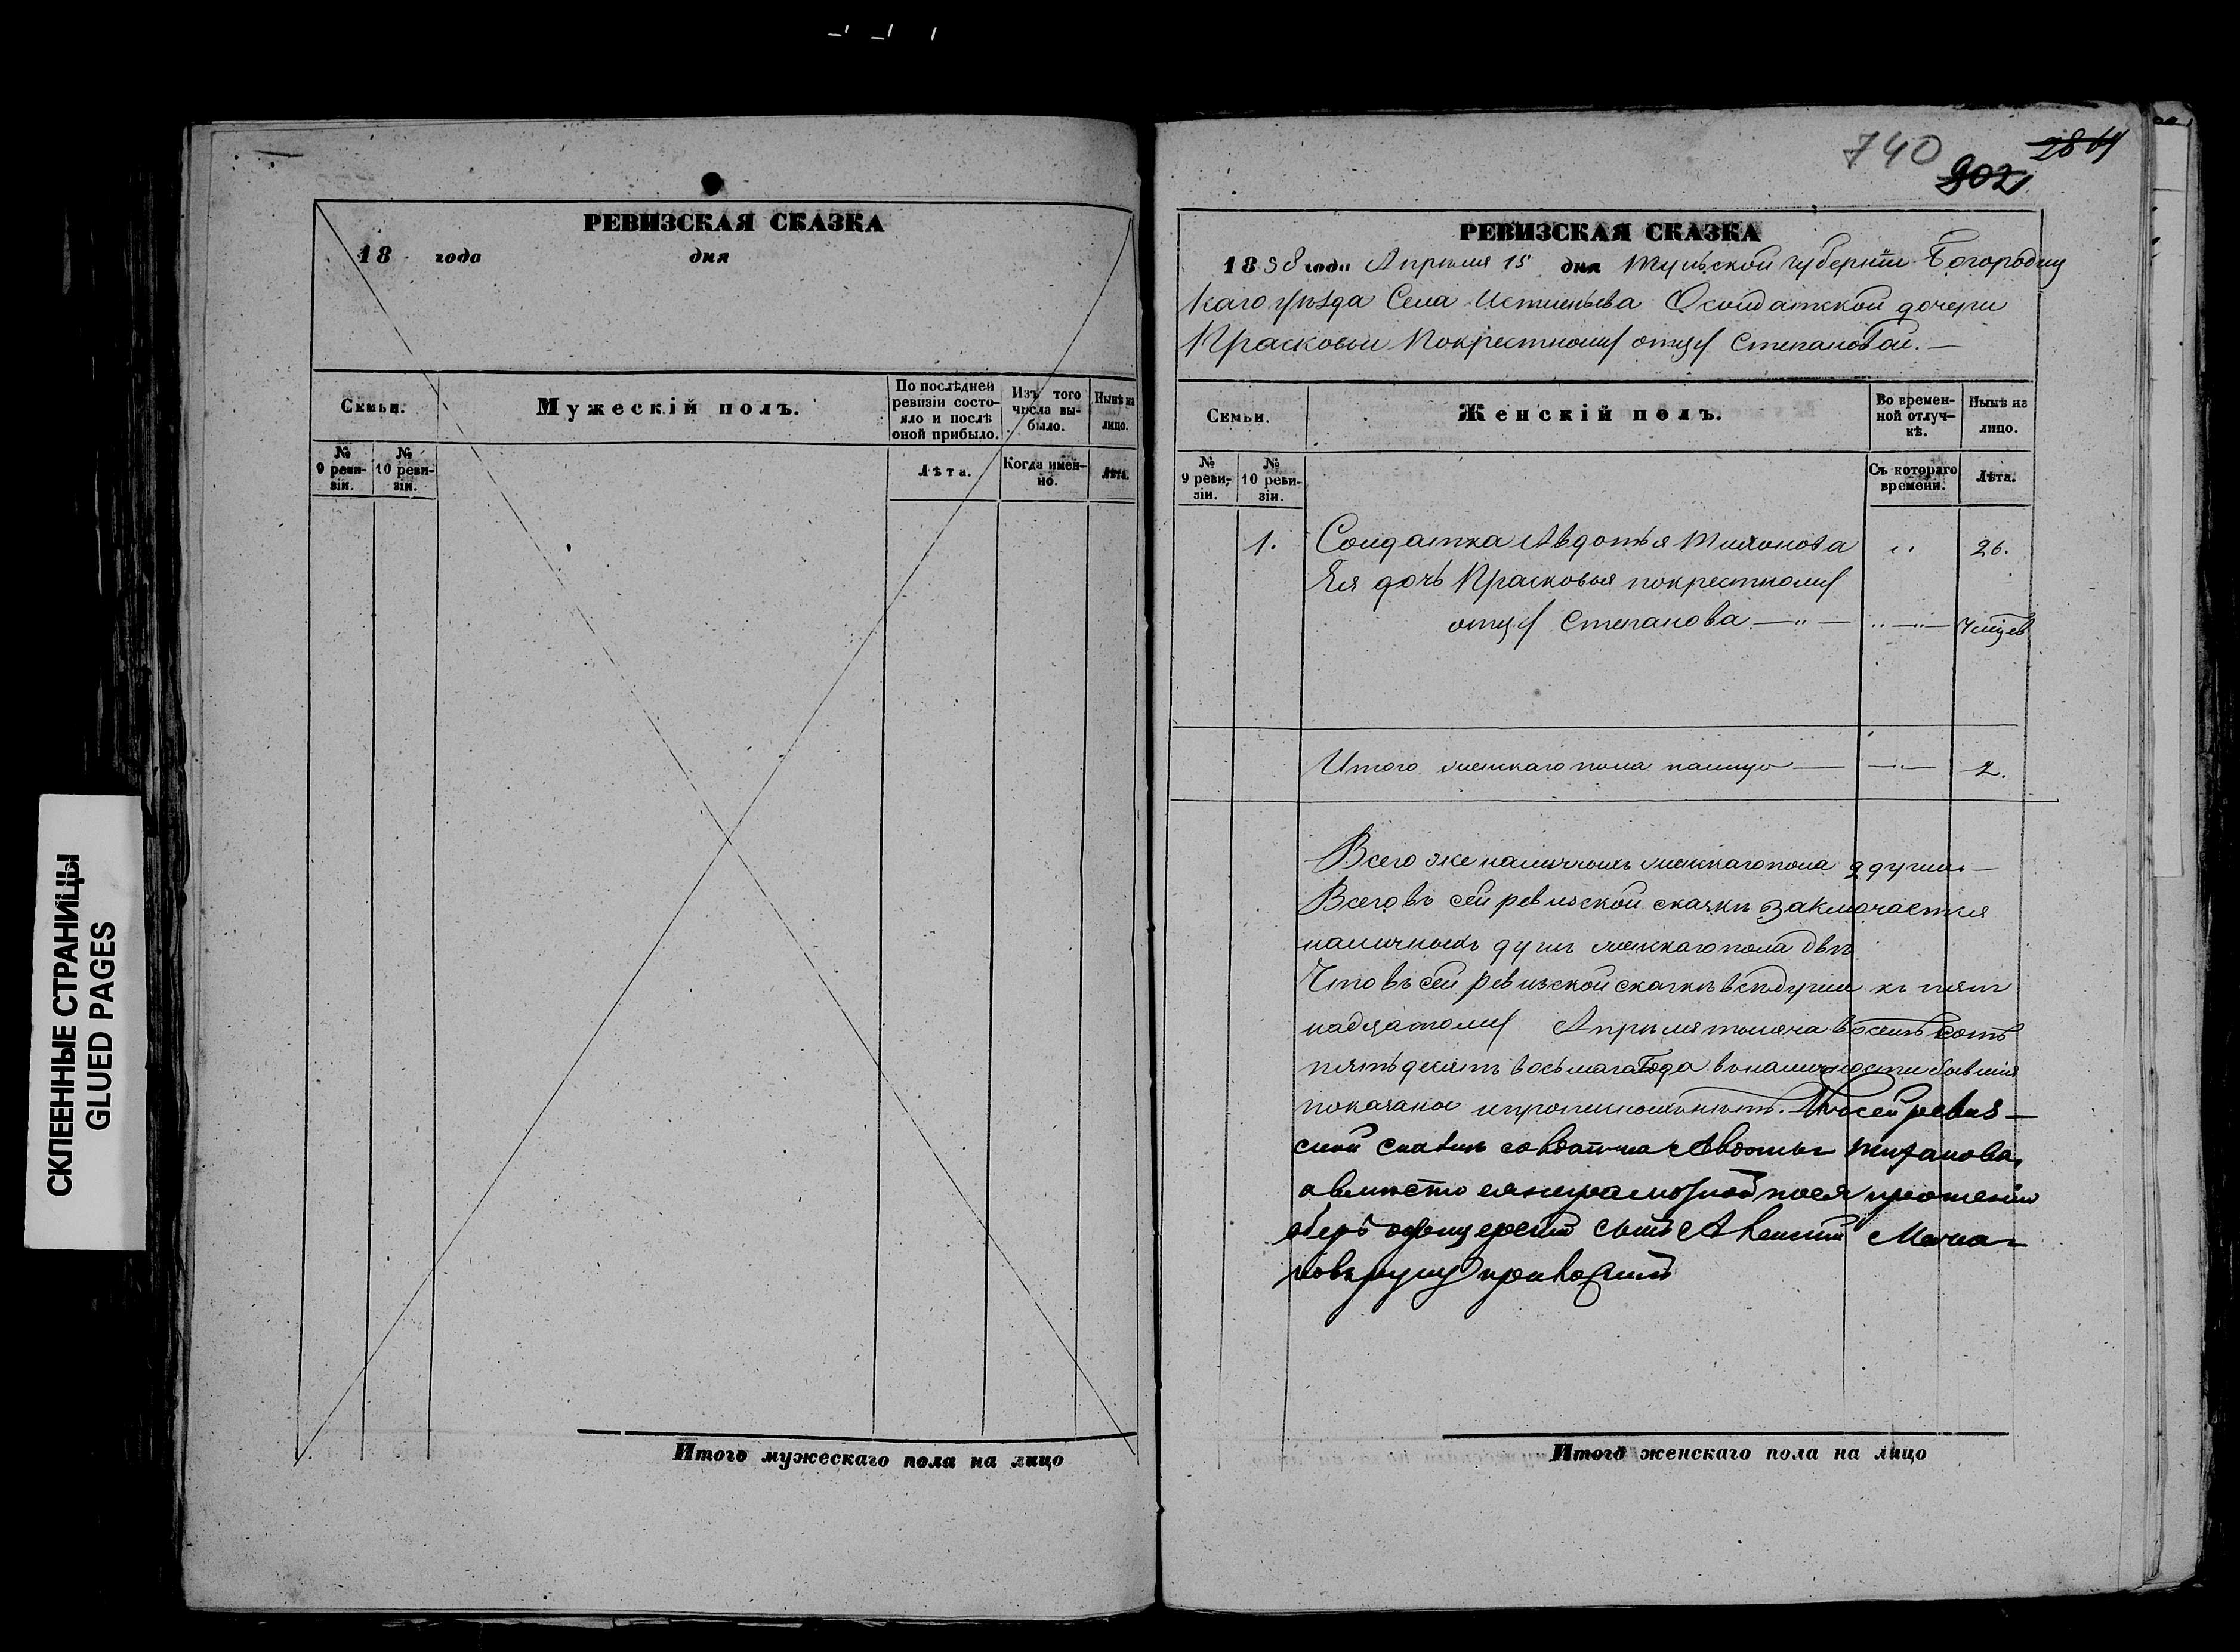 СКЛЕЕННЫЕ СТРАНИЦЫ
GLUED PAGES
РЕВИЗСКАЯ СКАЗКА
18 года дня
Семьи.
Мужескій полъ.
По послѣдней ревизіи состо-
яло и послѣ
оной прибыло.
Изъ того
числа вы-
было.
Нынѣ на
лицо.
№
9 реви-
зіи.
№
10 реви-
зіи.
Лѣта.
Когда имен-
но.
Лѣта.
Итого мужескаго пола на лицо
740
2861
902
РЕВИЗСКАЯ СКАЗКА
1858 года Апрѣля 15 дня Тульской губерніи Богородиц
каго уѣзда Села Истленьева О солдатской дочери
Прасковьи покрестному отцу Степановой.
Семьи.
Женскій полъ.
Во времен-
ной отлуч-
кѣ.
Нынѣ на
лицо.
№
9 реви-
зіи.
№
10 реви-
зіи.
Съ котораго
времени.
Лѣта.
1. Солдатка Авдотья Тихонова 26.
Ея дочь Прасковья покрестному
отцу Степанова
Итого женскаго пола налицо 2.
Всего же наличныхъ женскаго пола 2 души
Всего въ сей ревизской сказкѣ заключается
наличныхъ душъ женскаго пола двѣ
Что въ сей ревизской сказкѣ всѣ души къ пят
надцатому Апрѣля тысяча восемь сотъ
пятьдесятъ восьмаго Года въ наличности бывшія
показаны и прописныхъ нѣтъ. Къ сей ревиз
ской сказкѣ солдатка Авдотья Тиханова,
а вмѣсто ея неграмотной по ея прошенію
оберъ офицерскій сынъ
руку приложилъ
Итого женскаго пола на лицо